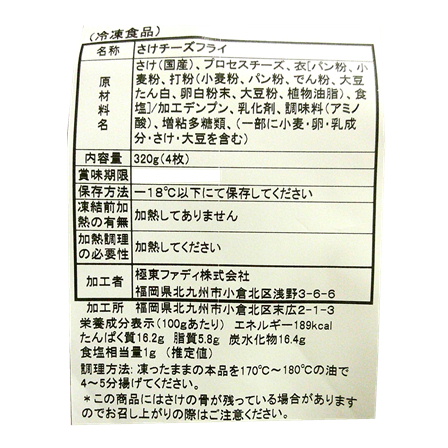 (冷凍食品)
名称 さけチーズフライ
原材料名 さけ(国産)、プロセスチーズ、衣[パン粉、小
麦粉、打粉(小麦粉、パン粉、でん粉、大豆
たん白、卵白粉末、大豆粉、植物油脂)、食
塩]/加工デンプン、乳化剤、調味料(アミノ
酸)、増粘多糖類、(一部に小麦・卵・乳成
分・さけ・大豆を含む)
内容量 320g(4枚)
賞味期限
保存方法 −18℃以下にて保存してください
凍結前加
熱の有無 加熱してありません
加熱調理
の必要性 加熱してください
加工者 極東ファディ株式会社
福岡県北九州市小倉北区浅野3-6-6
加工所 福岡県北九州市小倉北区末広2-1-3
栄養成分表示(100gあたり) エネルギー189kcal
たんぱく質16.2g 脂質5.8g 炭水化物16.4g
食塩相当量1g (推定値)
調理方法: 凍ったままの本品を170℃~180℃の油で
4~5分揚げてください。
*この商品にはさけの骨が残っている場合があります
のでお召し上がりの際はご注意ください。